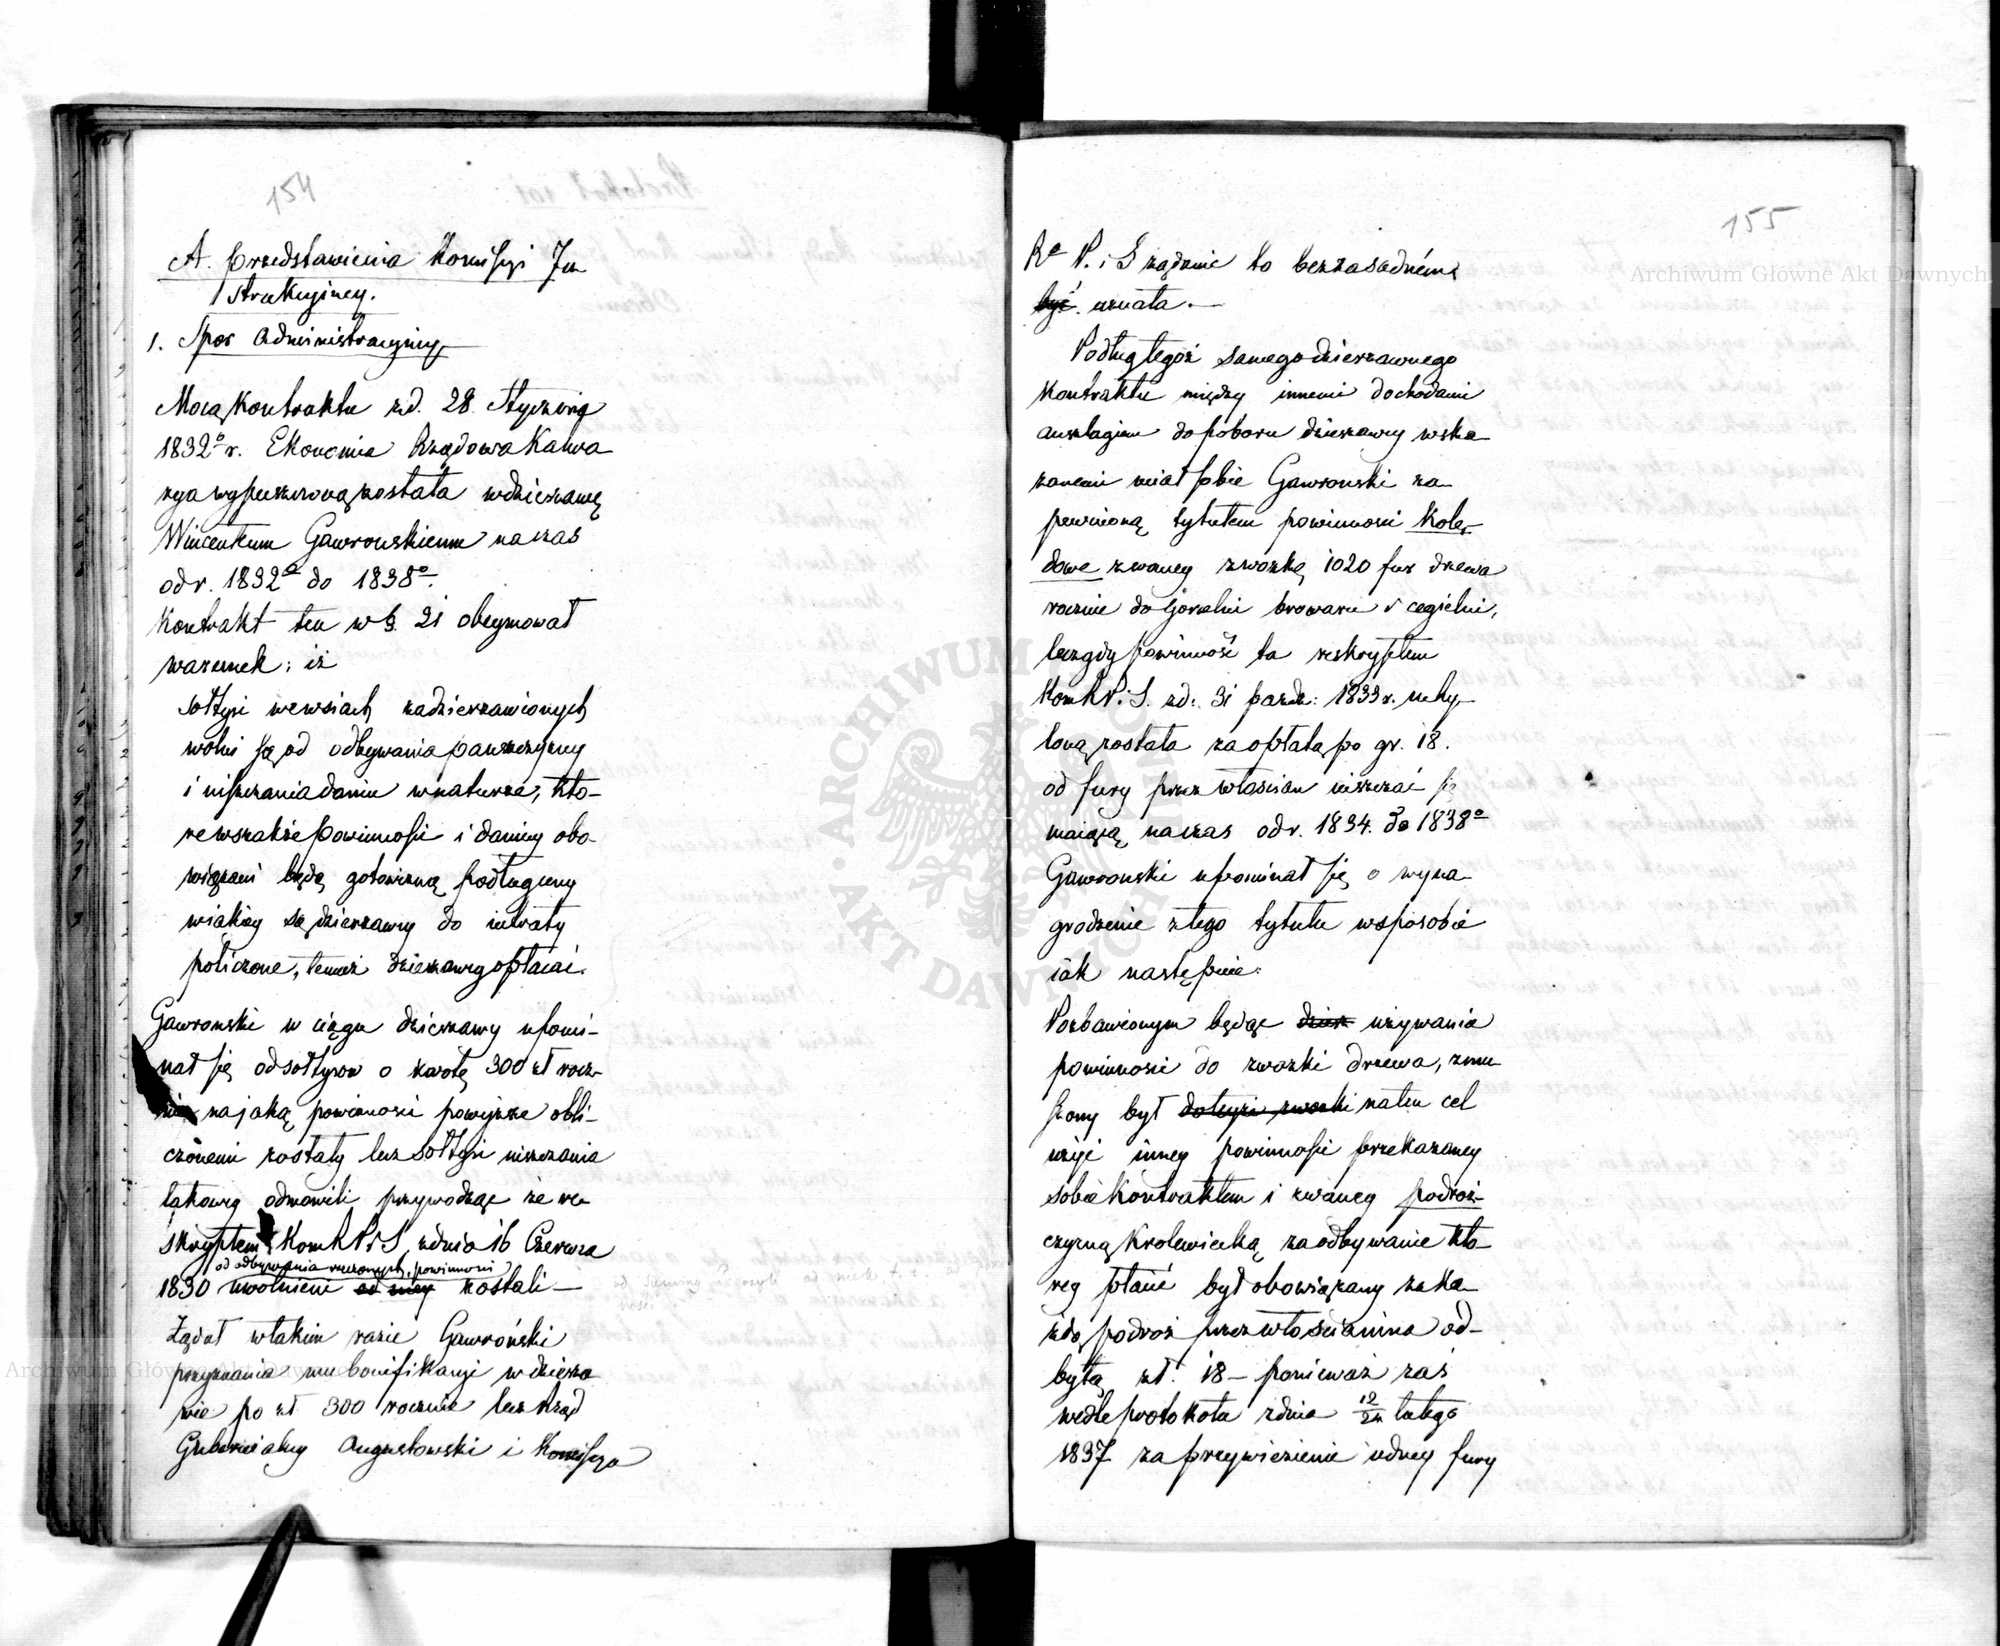 154
A. Przedstawienia Kommissyi In
strukcyjney.
1. Spor administracyiny
Mocą Kontraktu z d. 28 Stycznia
1832º r. Ekonomia Rządowa Kalwa
rya wypuszczoną została w dzierżawę
Wincentemu Gawrońskiemu na czas
od r. 1832º do 1838º.
Kontrakt ten w §. 21 obeymował
warunek; iż
Sołtysi we wsiach zadzierżawionych
wolni są od odbywania pańszczyzny
i uiszczania daniu w naturze, kto-
re wszakże powinności i daniny obo-
wiązani będą gotowizną podług ceny
w iakiey są dzierżawcy do intraty
policzone, temuż dzierżawcy opłacać.
Gawronski w ciągu dzierżawy upomi-
nał się od sołtysow o kwotę 300 zł rocz-
nie na jaką powinności powyższe obli-
czonemi zostały lecz Sołtysi uiszczania
takowey odmowili przywodząc że re-
skryptem Kom R P i S z dnia 16 Czerwca
od odbywania rzeczonych powinności
1830 uwolnieni od niey zostali —
Żądał w takim razie Gawroński
przyznania mu bonifikacyi w dzierża
wie po zł 300 rocznie lecz Rząd
Gubernialny Augustowski i Komissya
155
Rª P. i S żądanie to bezzasadném
być uznała. —
Podług tegoż samego dzierżawnego
Kontraktu między innemi dochodami
anszlagiem do poboru dzierżawcy wska-
zanemi miał sobie Gawronski za-
pewnioną tytułem powinności Kolę-
dowe zwaney zwozkę 1020 fur drzewa
rocznie do Gorzelni browaru i cegielni,
lecz gdy powinność ta reskryptem
Kom R P. i S. z d: 31 pazdz: 1833 r. uchy-
loną została za opłatą po gr. 18.
od fury przez włoscian uiszczać się
maiącą na czas od r. 1834. do 1838º
Gawronski upominał się o wyna-
grodzenie z tego tytułu w sposobie
iak następuie:
Pozbawionym będąc dzier używania
powinnosci do zwozki drzewa, zmu
szony był do teyże zwozki na ten cel
użyć inney powinności przekazaney
sobie Kontraktem i zwaney podroż-
czyzną Krolewiecką za odbywanie kto-
rey płacić był obowiązany za ka-
żdą podroż przez włościanina od-
bytą zł. 18 — ponieważ zaś
wedle protokołu z dnia 12/24 lutego
1837 za przywiezienie iedney fury